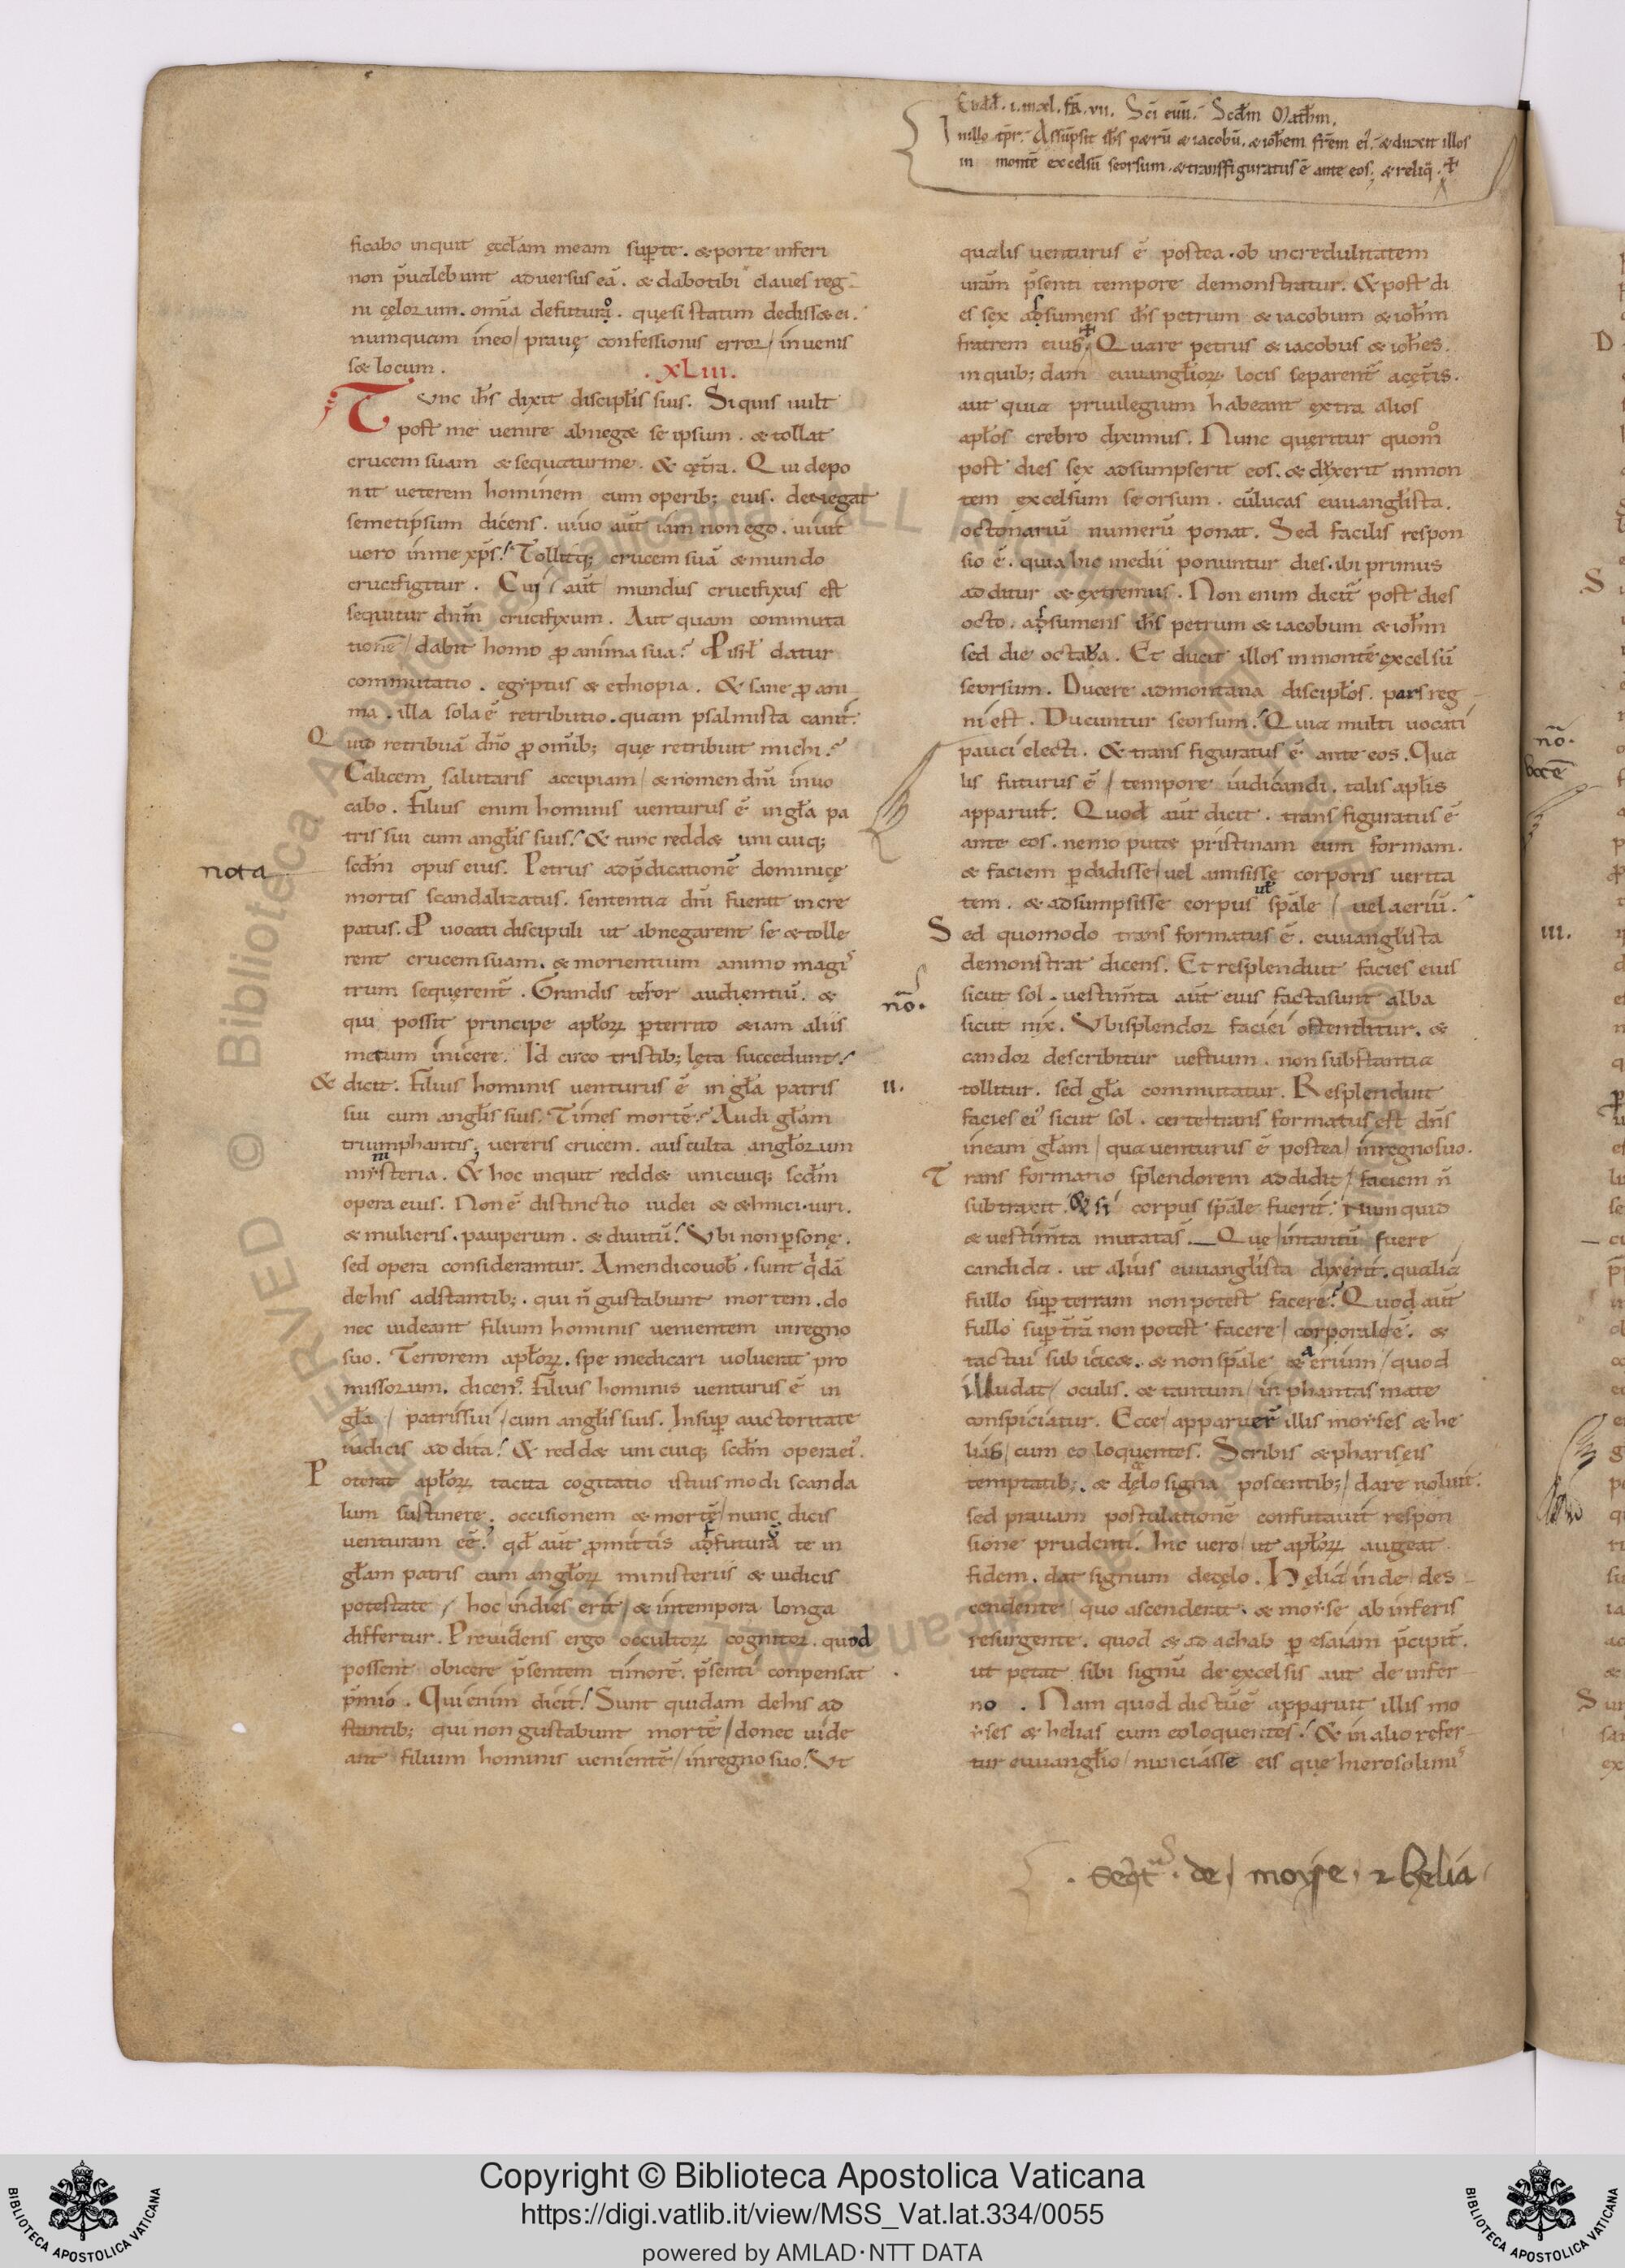 Euãd. i. mæl. fr̃. vii. Sci euu̅. Scd̅m Math̅m.
In illo tp̅r. Assu̅psit ih̅s petru̅ & iacobu̅. & ioh̅em fr̅em ei'. & duxit illos
in monte̅ excelsu̅ seorsum. & transfiguratus e̅ ante eos. & reliq̅.
ficabo inquit ęccl̅am meam sup̲te. & porte inferi
non p̅ualebunt aduersus ea̅. & dabo tibi claues reg
ni cęlorum. om̅ia de futuro. quę si statim dediss& ei.
numquam in eo / prauę confessionis error / inuenis
s& locum. .XLIII.
Tunc ih̅s dixit discipl̅is suis. Si quis uult
post me uenire abneg& se ipsum. & tollat
crucem suam & sequatur me. & cęt̅ra. Qui depo
nit ueterem hominem cum operib; eius. denegat
semetipsum dicens. uiuo aut̅ iam non ego. uiuit
uero in me xp̅s. Tollitq; crucem sua̅ & mundo
crucifigitur. Cui aut̅ mundus crucifixus est
sequitur dn̅m crucifixum. Aut quam commuta
tione̅ / dabit homo p̲ anima sua? P̲ isrl̅ datur
commutatio. egyptus & ethiopia. & sane p̲ ani
ma. illa sola e̅ retributio. quam psalmista canit.
Quid retribua̅ dn̅o p̲ omib; quę retribuit michi?
Calicem salutaris accipiam / & nomen dn̅i inuo
cabo. Filius enim hominis uenturus e̅ in gl̅a pa
tris sui cum angl̅is suis. & tunc redd& uni cuiq;
nota
scd̅m opus eius. Petrus ad p̅dicatione̅ dominicę
mortis scandalizatus. sententia dn̅i fuerat incre
patus. P̲uocati discipuli ut abnegarent se & tolle
rent crucem suam. & morientium animo magis
trum sequerent̅. Grandis terror audientiu̅. &
qui possit principe apl̅oꝝ p̲territo &iam aliis
metum inicere. Idcirco tristib; lęta succedunt.
& dicit. Filius hominis uenturus e̅ in gl̅a patris
sui cum angl̅is suis. Times morte̅? Audi gl̅am
triumphantis. uereris crucem. ausculta angl̅orum
mysteria. & hoc inquit redd& unicuiq; scd̅m
opera eius. Non e̅ distinctio iudei & &hnici. uiri.
& mulieris. pauperum. & diuitu̅. Vbi non p̲sonę.
sed opera considerantur. Amen dico uob̅. sunt q̅da̅
de his adstantib;. qui n̅ gustabunt mortem. do
nec uideant filium hominis uenientem in regno
suo. Terrorem apl̅oꝝ. spe medicari uoluerat pro
missorum. dicens. Filius hominis uenturus e̅ in
gl̅a / patris sui / cum angl̅is suis. Insup̲ auctoritate
iudicis addita. & redd& unicuiq; scd̅m opera ei'.
Poterat apl̅oꝝ tacita cogitatio istius modi scanda
lum sustinere. occisionem & morte̅ / nunc dicis
venturam e̅e. qd̅ aut̅ p̲mittis adfutura te in
gl̅am patris cum angl̅oꝝ ministeriis & iudicis
potestate / hoc in dies erit / & in tempora longa
differtur. Preuidens ergo occultoꝝ cognitor. quod
possent obicere p̅sentem timore̅. p̅senti conpensat
p̅mio. Qui enim dicit. Sunt quidam de his ad
stantib; qui non gustabunt morte̅ / donec uide
ant filium hominis ueniente̅ / in regno suo. Vt
qualis uenturus e̅ postea. ob incredulitatem
ur̅am p̅senti tempore demonstratur. & post di
es sęx adsumens ih̅s petrum & iacobum & ioh̅m
fratrem eius. Quare petrus & iacobus & ioh̅es.
in quib;dam euuangl̅ioꝝ locis separent̅ a cęt̅is.
aut quia priuilegium habeant extra alios
apl̅os crebro dyximus. Nunc queritur quom̊
post dies sęx adsumpserit eos. & dyxerit in mon
tem excelsum seorsum. cu̅ lucas euuangl̅ista.
octonariu̅ numeru̅ ponat. Sed facilis respon
sio e̅. quia hic medii ponuntur dies. ibi primus
additur & extremus. Non enim dicit̅ post dies
octo. adsumens ih̅s petrum & iacobum & ioh̅m
sed die octaba. Et ducit illos in monte̅ excelsu̅
seorsum. Ducere ad montana discipl̅os. pars reg
ni est. Ducuntur seorsum. Quia multi uocati
pauci electi. & transfiguratus e̅ ante eos. Qua
lis futurus e̅ / tempore iudicandi. talis apl̅is
apparuit. Quod aut̅ dicit. transfiguratus e̅
ante eos. nemo put& pristinam eum formam.
& faciem p̲didisse / uel amisisse corporis uerita
tem. & adsumpsisse corpus sp̅ale / uel aeriu̅.
Sed quomodo transformatus e̅. euuangl̅ista
demonstrat dicens. Et resplenduit facies eius
no̅.
sicut sol. uestim̅ta aut̅ eius facta sunt alba
sicut nix. Vbi splendor faciei ostenditur. &
candor describitur uestium. non substantia
II.
tollitur. sed gl̅a commutatur. Resplenduit
facies ei' sicut sol. certe transformatus est dn̅s
in eam gl̅am / qua uenturus e̅ postea / in regno suo.
Transformatio splendorem addidit / faciem n̅
subtraxit. & si corpus sp̅ale fuerit. numquid
& uestim̅ta mutata s̅. Que in tantu̅ fuere
candida. ut alius euuangl̅ista dixerit. qualia
fullo sup̲ terram non potest facere. Quod aut̅
fullo sup̲ t̅ra̅ non potest facere / corporale e̅. &
tactui subiac&. & non sp̅ale & aerium / quod
illudat / oculis. & tantum / in phantasmate
conspiciatur. Ecce / apparuer̅ illis moyses & he
lias / cum eo loquentes. Scribis & phariseis
temptatib;. & de cęlo signa poscentib; / dare noluit.
sed prauam postulatione̅ confutauit respon
sione prudenti. Hic uero / ut apl̅oꝝ augeat
fidem. dat signum de cęlo. Hęlia / inde / des
cendente / quo ascenderat. & moyse ab inferis
resurgente. quod & ad achab p̲ esaiam p̅cipit̅.
ut petat sibi signu̅ de excelsis aut de infer
no. Nam quod dictu̅ e̅ apparuit illis mo
yses & helias cum eo loquentes. & in alio refer
tur euuangl̅io / nunciasse eis que hierosolimis
. Seqt̅. de / moyse. 2 helia
no̅.
III.
Copyright © Biblioteca Apostolica Vaticana
https://digi.vatlib.it/view/MSS_Vat.lat.334/0055
powered by AMLAD·NTT DATA
BIBLIOTECA APOSTOLICA VATICANA
BIBLIOTECA APOSTOLICA VATICANA